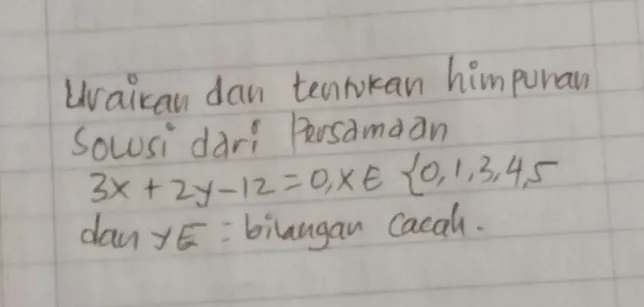 Uraikan dan tentukan himpunan
Solusi dari Persamaan
3x + 2y - 12 = 0, x ∈ {0, 1, 3, 4, 5
dan y ∈ = bilangan cacah.